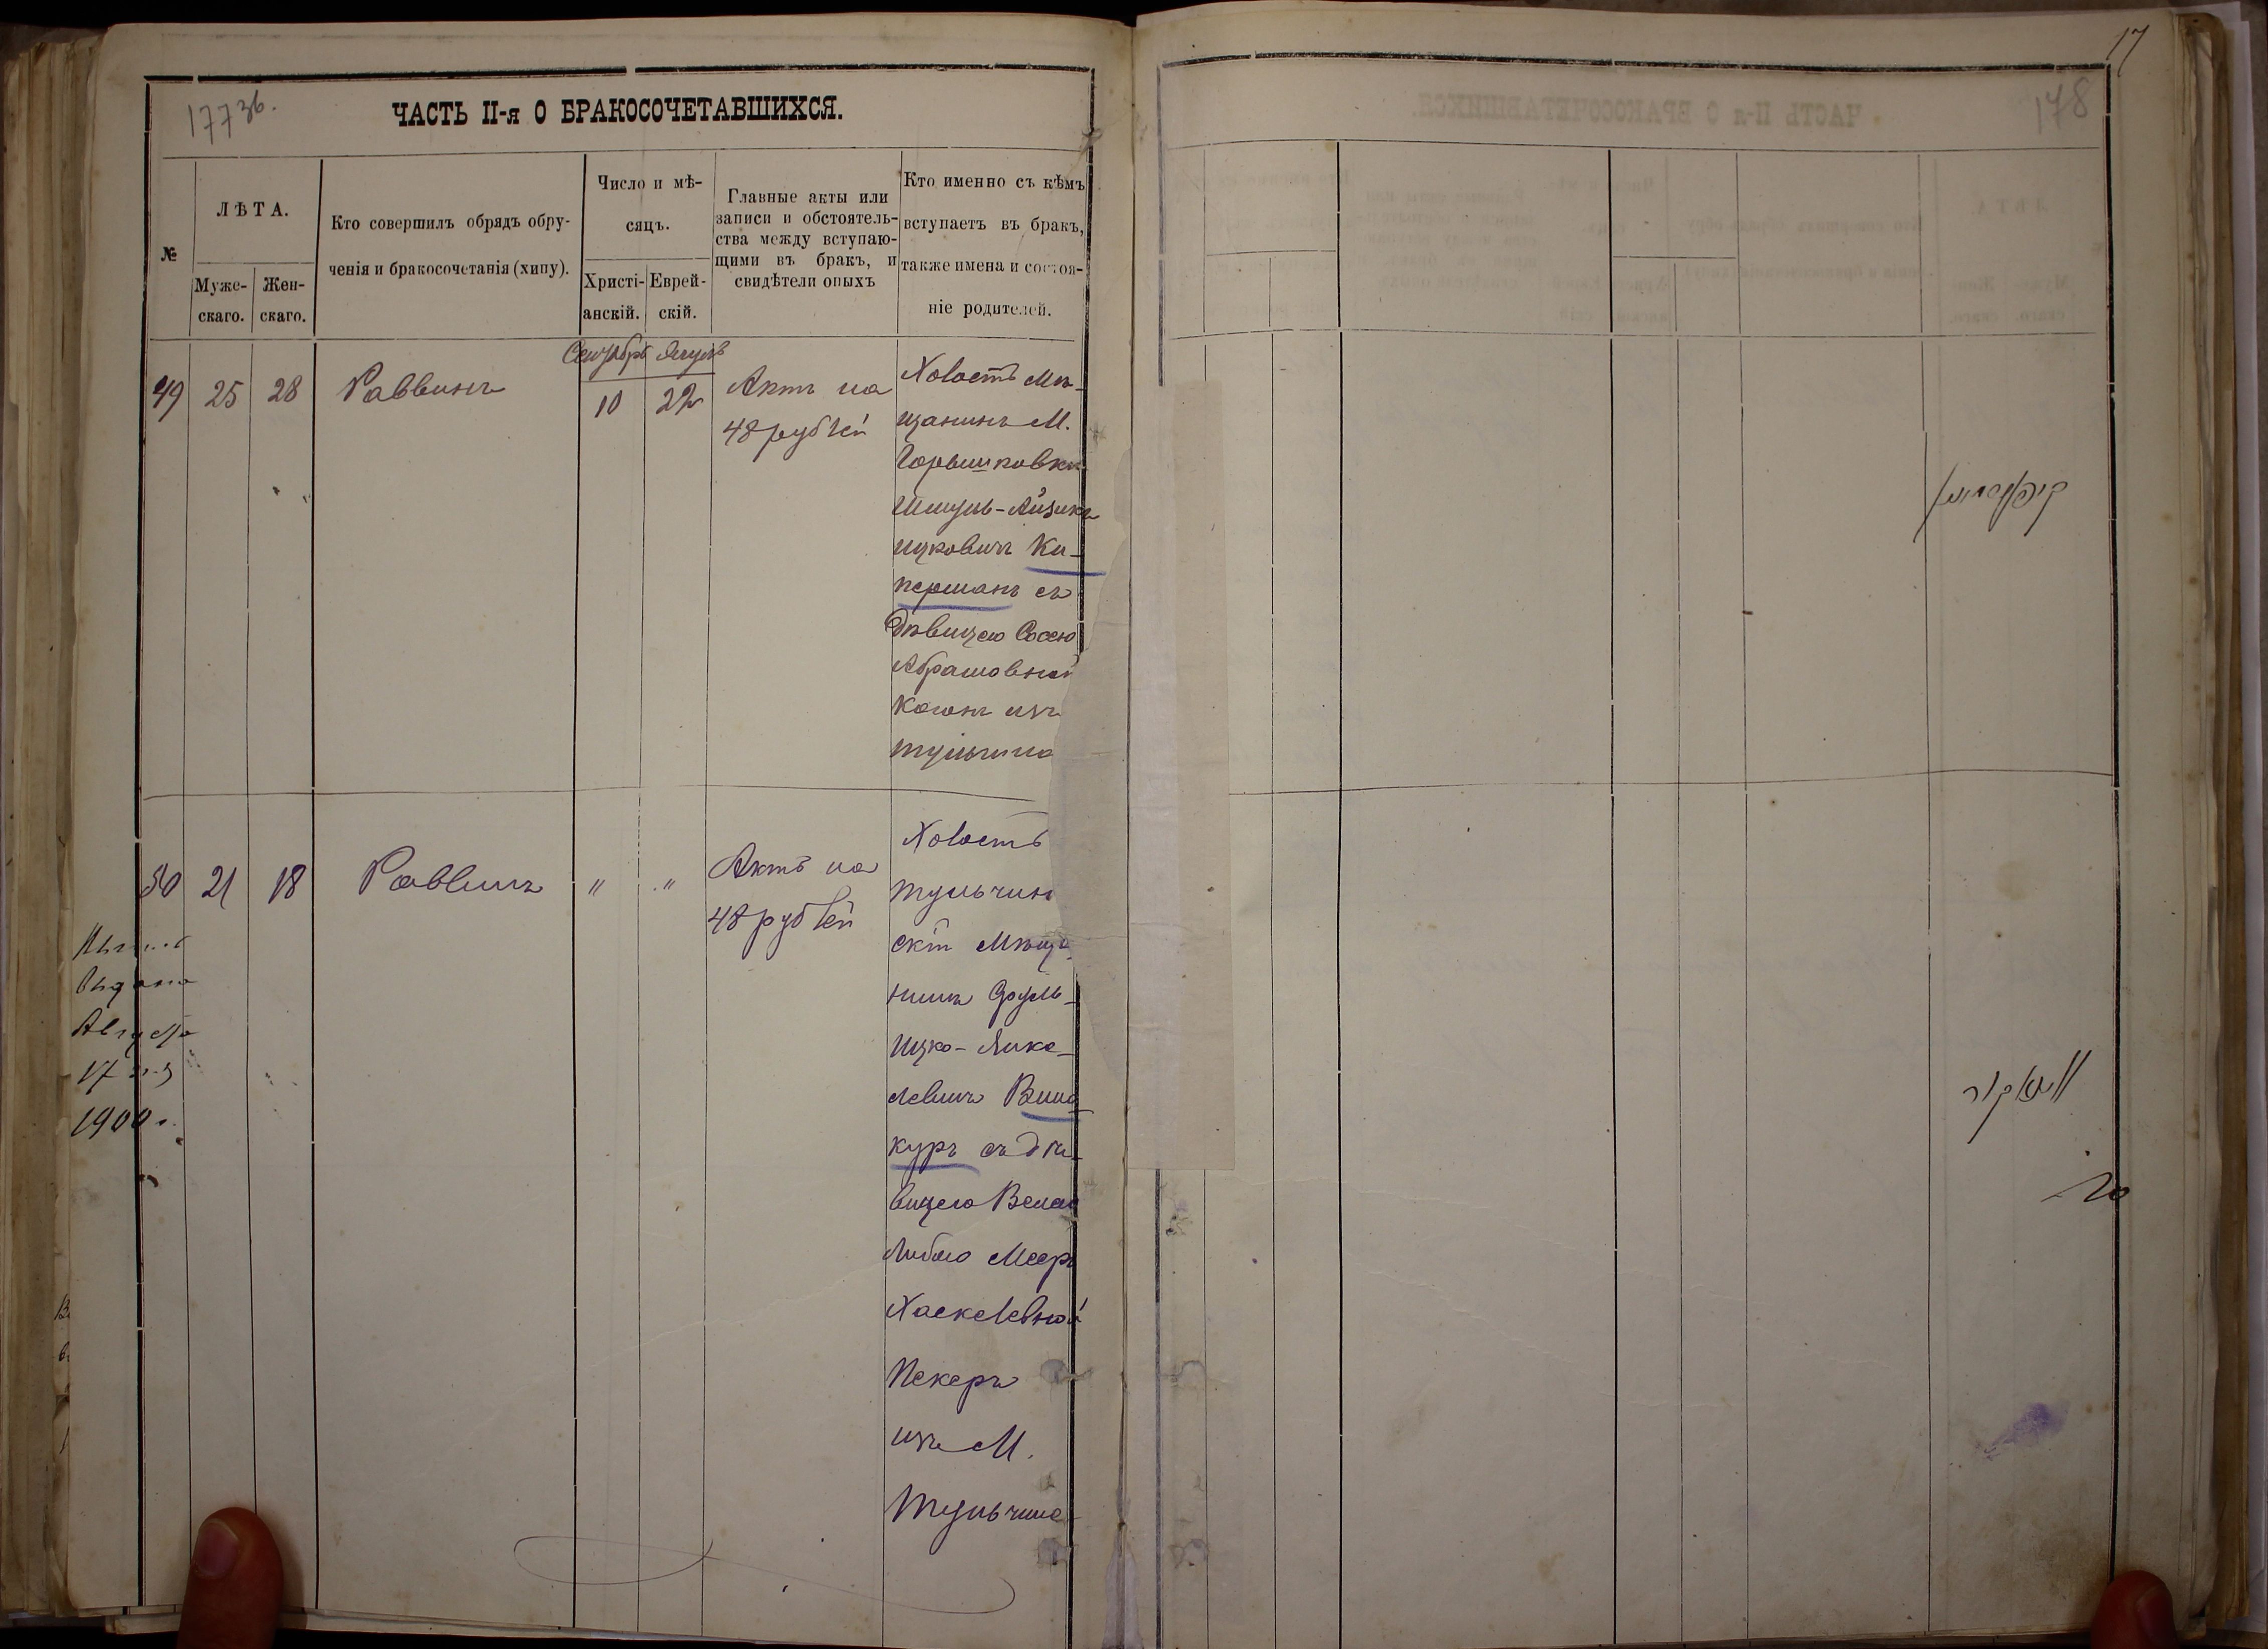 177 зв.
ЧАСТЬ II-я О БРАКОСОЧЕТАВШИХСЯ.
№
ЛѢТА.
Муже-
скаго.
Жен-
скаго.
Кто совершилъ обрядъ обру-
ченія и бракосочетанія (хипу).
Число и мѣ-
сяцъ.
Христі-
анскій.
Еврей-
скій.
Главные акты или
записи и обстоятель-
ства между вступаю-
щими въ бракъ, и
свидѣтели оныхъ
Кто именно съ кѣмъ
вступаетъ въ бракъ,
также имена и состоя-
ніе родителей.
Сентябрь
49 25 28 Раввинъ 10 22
Актъ на
48 рублей
Холостъ Мѣ-
щанинъ М.
Горышковки
Шмуль-Айзикъ
Ицковичъ Ки-
перманъ съ
дѣвицею Сосею
Абрамовной
Коганъ изъ
Тульчина
50 21 18 Раввинъ " "
Актъ на
48 рублей
Холостъ
Тульчин
скій Мѣща-
нинъ Сруль-
Ицко-Янке-
левичъ Вино
куръ съ дѣ-
вицею
Либою Меер
Хаскелевной
Пекеръ
изъ М.
Тульчина
Выдана
Августа
17
1900 г.
17
178
קיפערמאן
וינאקור